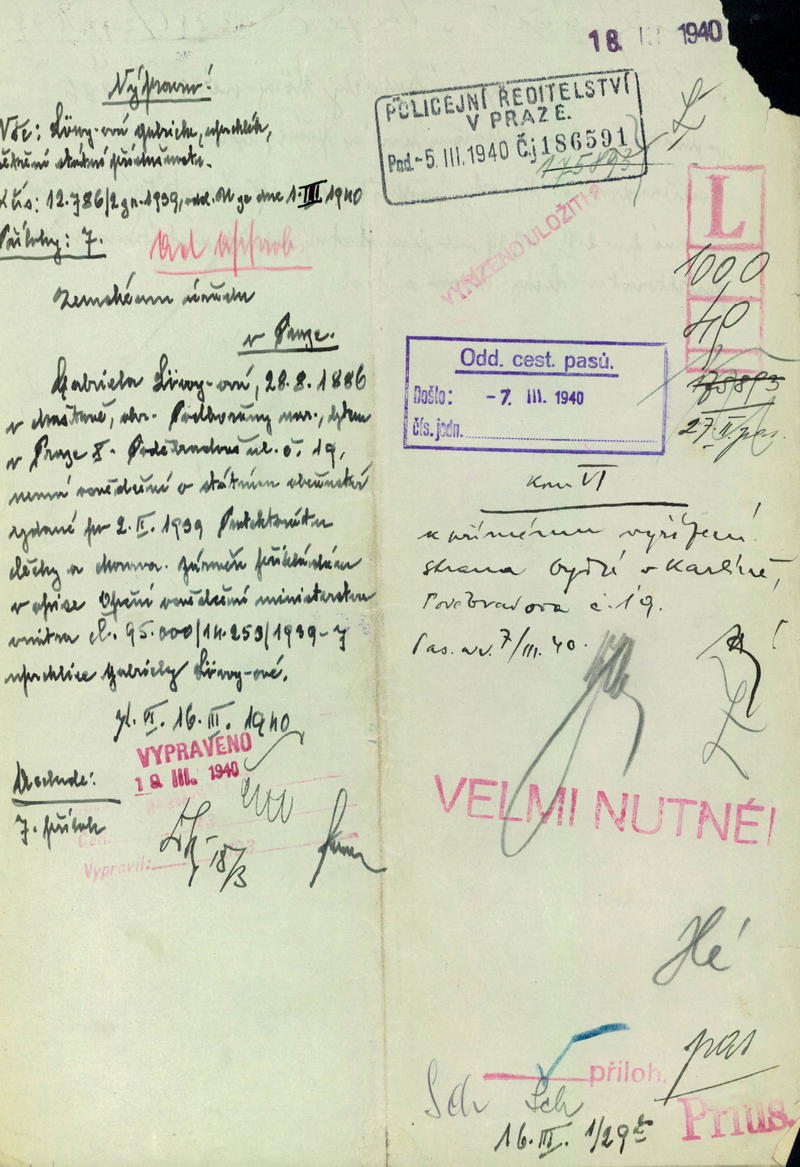 18. III 1940
Výpravna!
Věc: Löwy-ová Gabriela, uprchlík,
státní příslušnosti.
K čís: 12.786/2 gn. 1939, odd. ze dne 1. III 1940
Přílohy: 7.
Zemskému úřadu
v Praze.
Gabriela Löwy-ová, 28.8.1886
v, okr. Podbořany nar., bytem
v Praze X. Poděbradova ul. č. 19,
nemá osvědčení o státním občanství
vydané po 2. II. 1939 Protektorátu
Čechy a Morava. Zároveň předkládám
v opise osvědčení ministerstva
vnitra čl. 95.000/14.253/1939-7
uprchlice Gabriely Löwy-ové.
VI. 16. III. 1940
VYPRAVENO
18 III. 1940
7. příloh
Vypravil:
18/3
POLICEJNÍ ŘEDITELSTVÍ
V PRAZE.
Pod. -5. III. 1940 Čj 186591
175893
VYŘÍZENO ULOŽITI
L
1000
40
175893
27. II. pas.
Odd. cest. pasů.
Došlo: -7. III. 1940
čís. jedn.
Kom VI
k přímému vyřízení.
strana bydlí v Karlíně,
Poděbradova č. 19.
Pas. 7/III. 40.
VELMI NUTNÉ!
Hé
pas
příloh.
Sch Sch
16. III. 1/29
Prius.